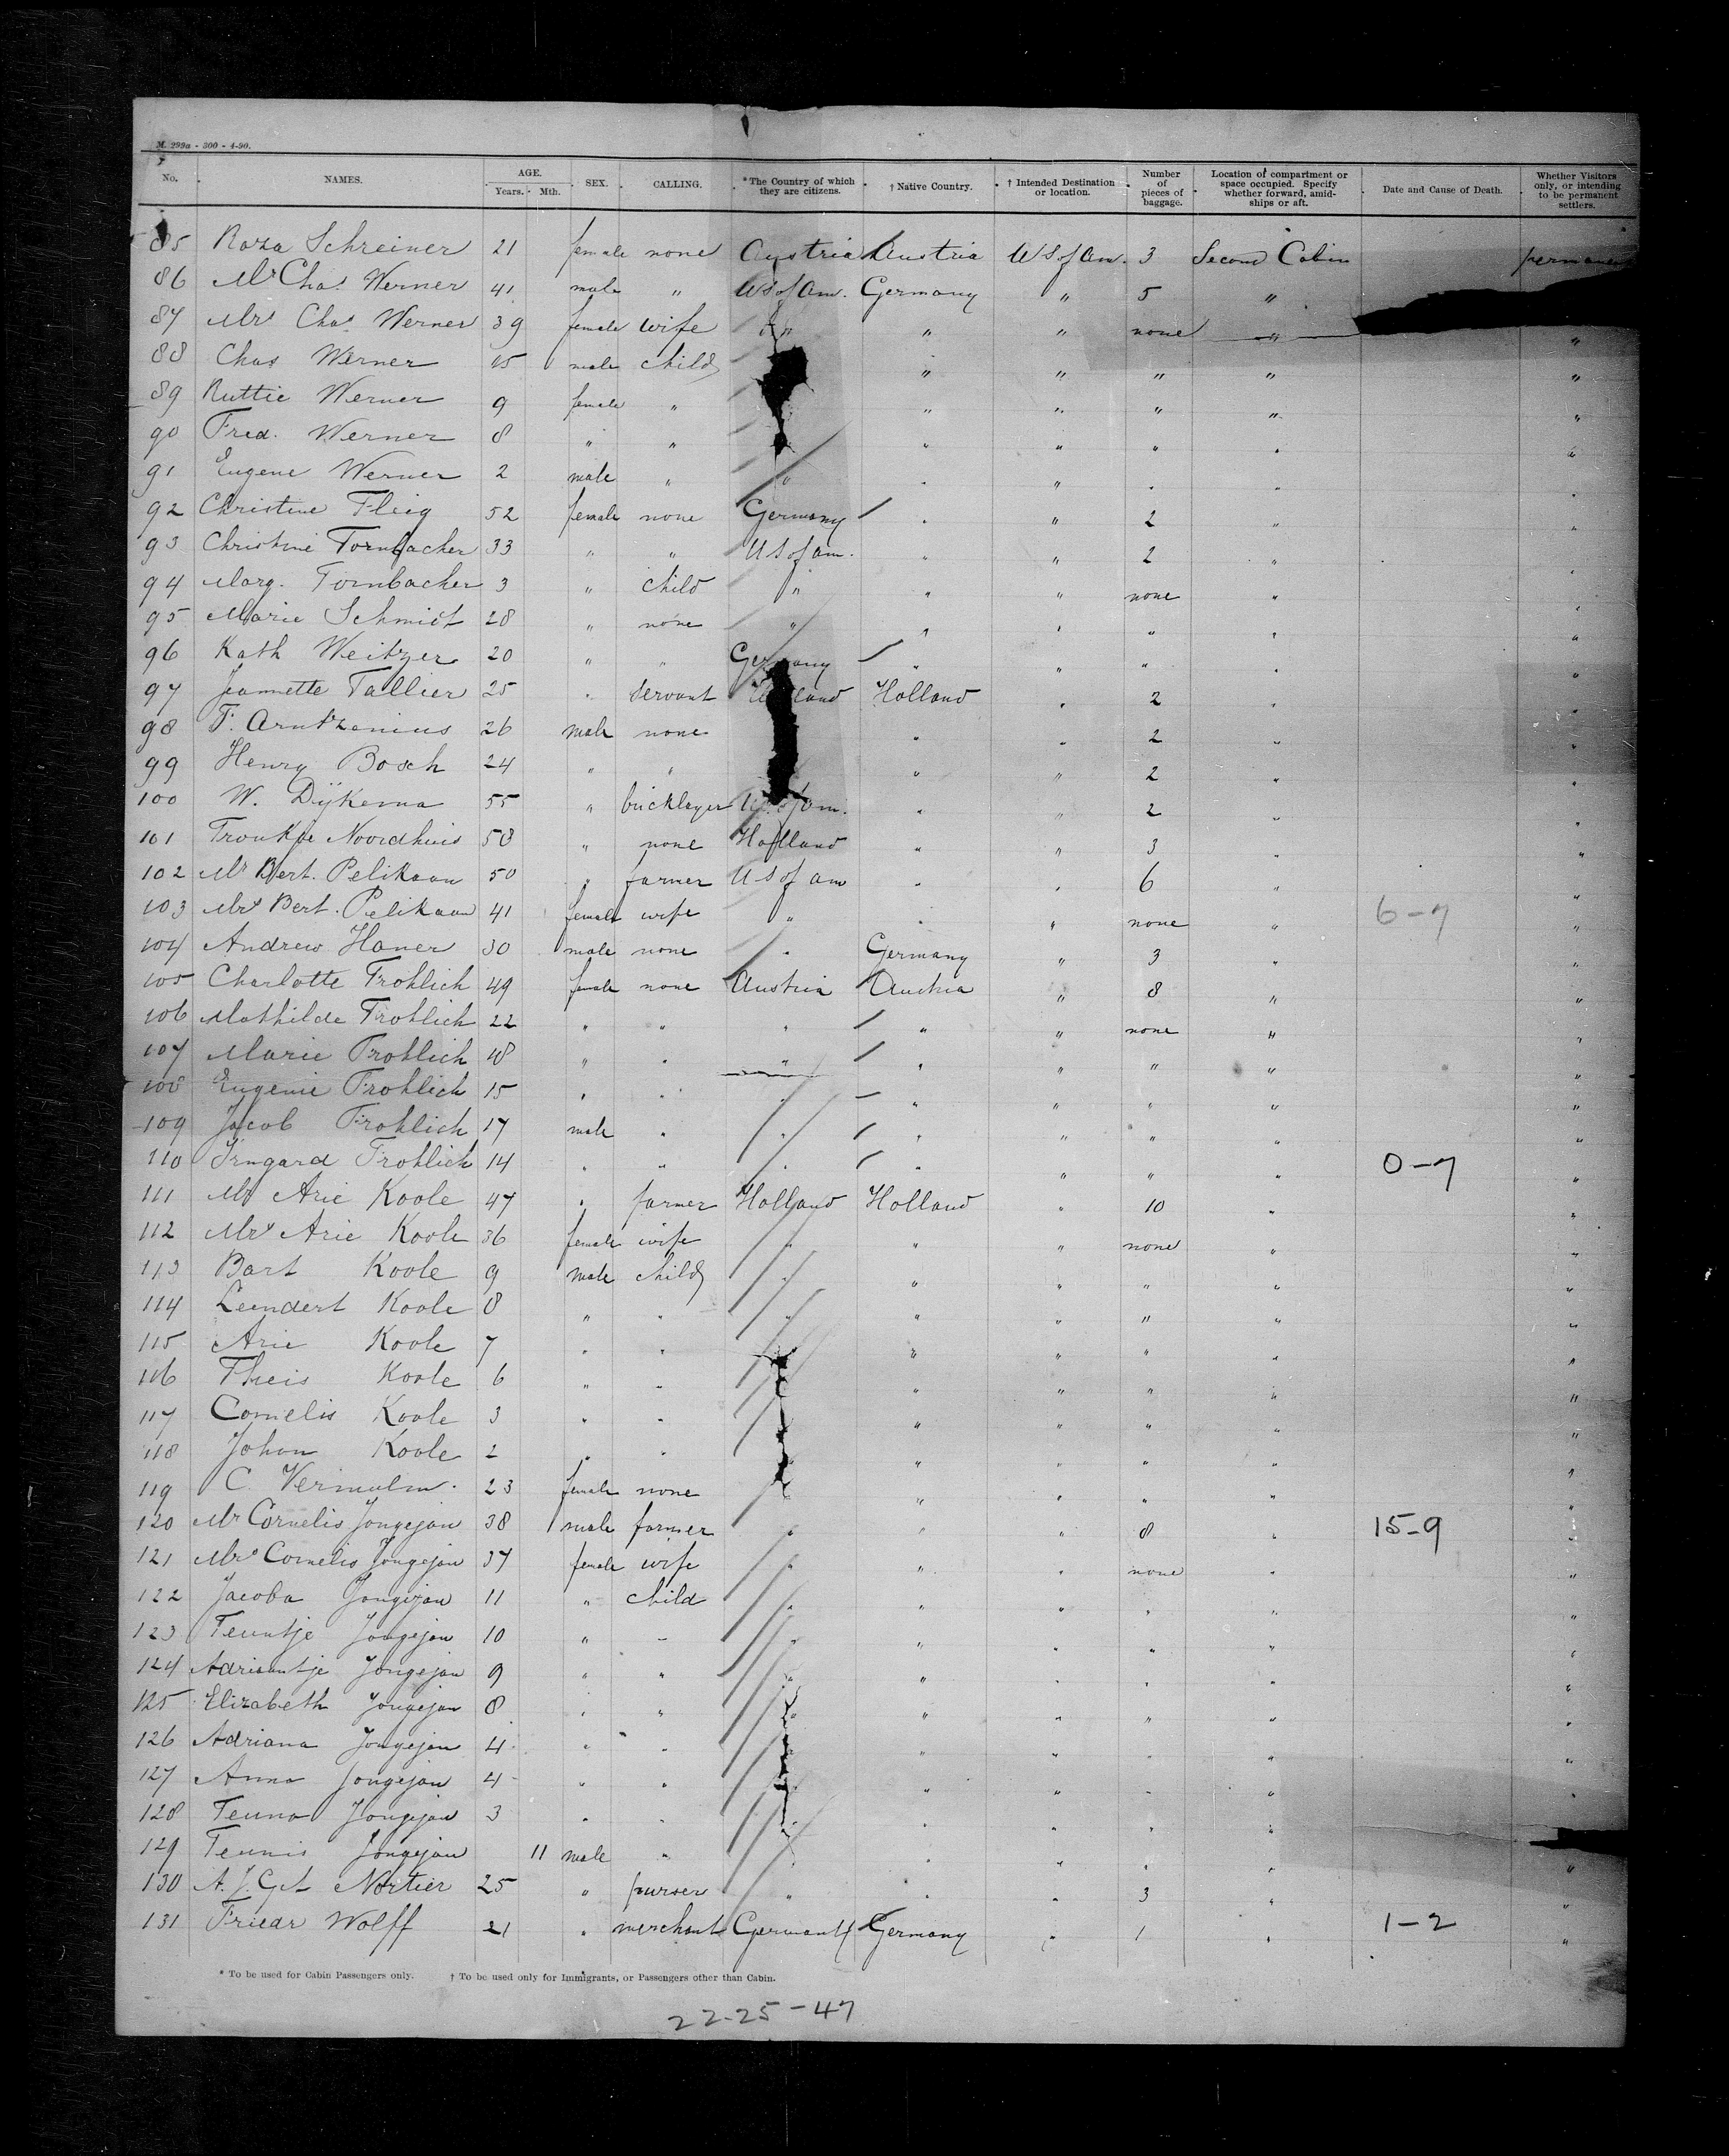 M. 299a - 300 - 4-90.
No. NAMES. AGE. Years. Mth. SEX. CALLING. *The Country of which they are citizens. † Native Country. † Intended Destination or location. Number of pieces of baggage. Location of compartment or space occupied. Specify whether forward, amid-ships or aft. Date and Cause of Death. Whether Visitors only, or intending to be permanent settlers.
85 Roza Schreiner 21 female none Austria Austria U S of Am. 3 Second Cabin
86 Mr Chas. Werner 41 male " U S of Am. Germany " 5 "
87 Mrs Chas. Werner 39 female wife " " " none " "
88 Chas Werner 15 male child " " " " "
89 Ruttie Werner 9 female " " " " " "
90 Fred. Werner 8 " " " " " " "
91 Eugene Werner 2 male " " " " " " "
92 Christine Fleig 52 female none Germany " " 2 " "
93 Christine Tornbacher 33 " " U S of am. " " 2 " "
94 Marg. Tornbacher 3 " child " " " none " "
95 Marie Schmidt 28 " none " " " " " "
96 Kath Weitzer 20 " " Germany " " " " "
97 Jeannette Tallier 25 " servant Holland Holland " 2 " "
98 F. Arntzenius 26 male none " " 2 " "
99 Henry Bosch 24 " " " " 2 " "
100 W. Dijkema 55 " bricklayer U S of am. " " 2 " "
101 Noordhuis 58 " none Holland " " 3 " "
102 Mr Bert. Pelikaan 50 " farmer U S of am " " 6 " "
103 Mrs Bert. Pelikaan 41 female wife " " " none " 6-7 "
104 Andrew Haner 30 male none " Germany " 3 " "
105 Charlotte Frohlich 49 female none Austria Austria " 8 " "
106 Mathilde Frohlich 22 " " " " " none " "
107 Marie Frohlich 18 " " " " " " " "
108 Eugenie Frohlich 15 " " " " " " " "
109 Jacob Frohlich 17 male " " " " " " "
110 Irngard Frohlich 14 " " " " " " " 0-7 "
111 Mr Arie Koole 47 " farmer Holland Holland " 10 " "
112 Mrs Arie Koole 36 female wife " " " none " "
113 Bart Koole 9 male child " " " " " "
114 Leendert Koole 8 " " " " " " " "
115 Arie Koole 7 " " " " " " "
116 Theis Koole 6 " " " " " " "
117 Cornelis Koole 3 " " " " " " "
118 Johan Koole 2 " " " " " " "
119 C. Vermulm. 23 female none " " " " "
120 Mr Cornelis Jongejan 38 male farmer " " " 8 " 15-9 "
121 Mrs Cornelis Jongejan 37 female wife " " " none " "
122 Jacoba Jongejan 11 " child " " " " " "
123 Teuntje Jongejan 10 " " " " " " " "
124 Adriaantje Jongejan 9 " " " " " " " "
125 Elizabeth Jongejan 8 " " " " " " " "
126 Adriana Jongejan 4 " " " " " " "
127 Anna Jongejan 4 " " " " " " "
128 Teuna Jongejan 3 " " " " " " " "
129 Teunis Jongejan 11 male " " " " " " "
130 Nortier 25 " purser " " " 3 " "
131 Friedr Wolff 21 " merchant Germany Germany " 1 " 1-2 "
* To be used for Cabin Passengers only. † To be used only for Immigrants, or Passengers other than Cabin.
22-25-47